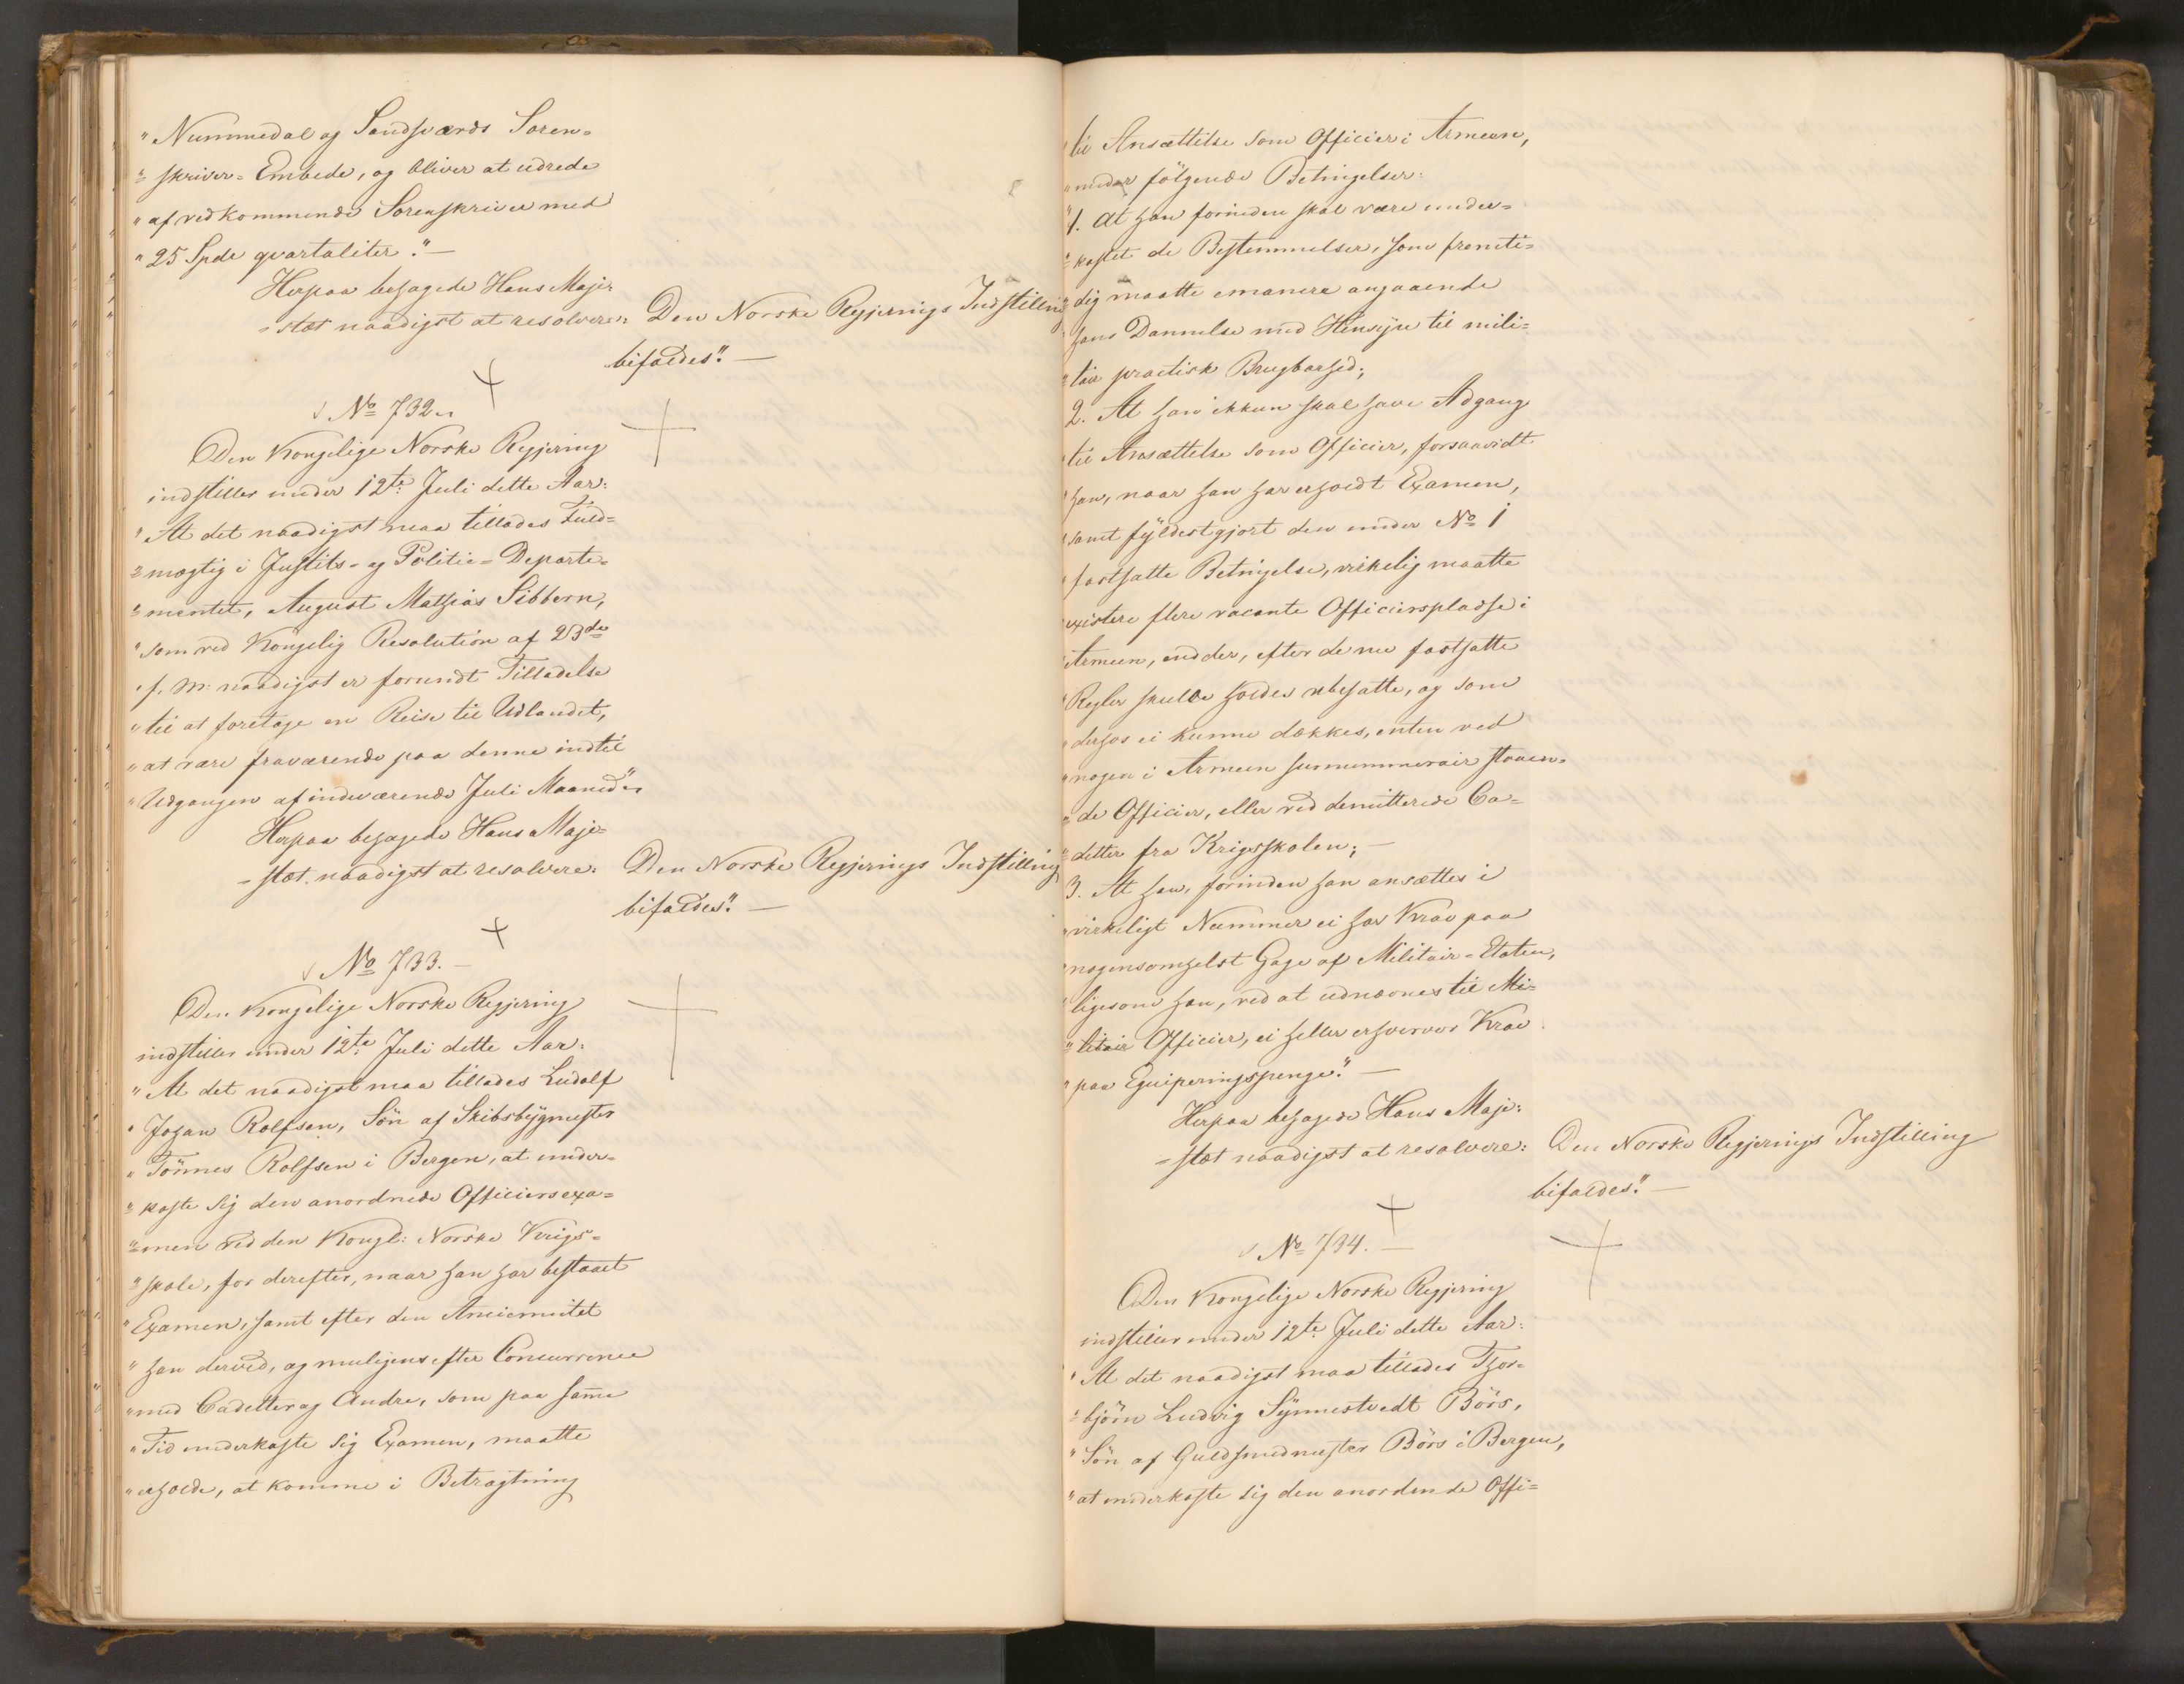 "Nummedal og Sandsværds Soren=
"skriver=Embede, og bliver at udrede
"af vedkommende Sorenskriver med
"25 Spdr qvartaliter."—
Herpaa behagede Hans Maje=
=stæt naadigst at resolvere: Den Norske Regjerings Indstilling
bifaldes."—
No 732.
Den Kongelige Norske Regjering
indstiller under 12te Juli dette Aar:
"At det naadigst maa tillades Fuld=
"mægtig i Justits- og Politie=Departe=
"mentet, August Mathias Sibbern,
"som ved Kongelig Resolution af 23de
"f. M. naadigst er forundt Tilladelse
"til at foretage en Reise til Udlandet,
"at være fraværende paa denne indtil
"Udgangen af indeværende Juli Maaned"
Herpaa behagede Hans Maje=
=stæt naadigst at resolvere: Den Norske Regjerings Indstilling
bifaldes."—
No 733.—
Den Kongelige Norske Regjering
indstiller under 12te Juli dette Aar:
"At det naadigst maa tillades Ludolf
"Johan Rolfsen, Sön af Skibsbygmester
"Tönnes Rolfsen i Bergen, at under=
"kaste sig den anordnede Officiersexa=
"men ved den Kongl: Norske Krigs=
"skole, for derefter, naar han har bestaaet
"Examen, samt efter den Anciennitet
"han derved, og muligens efter Concurrence
"med Cadetter og Andre, som paa samme
"Tid underkaste sig Examen, maatte
"erholde, at komme i Betragtning
"til Ansættelse som Officier i Armeen,
"under fölgende Betingelser:
"1. At han forinden skal være under=
"kastet de Bestemmelser, som fremti=
"dig maatte emanere angaaende
"hans Dannelse med Hensyn til mili=
"tair practisk Brugbarhed;
2. At han ikkun skal have Adgang
"til Ansættelse som Officier, forsaavidt
"han, naar han har erholdt Examen,
"samt fyldestgjort den under No 1
"fastsatte Betingelse, virkelig maatte
"existere flere vacante Officierspladse i
"Armeen, end der, efter de nu fastsatte
"Regler skulle holdes ubesatte, og som
"derhos ei kunne dækkes, enten ved
"nogen i Armeen surnummerair staaen=
"de Officier, eller ved demitterede Ca=
"detter fra Krigsskolen;—
3. At han, forinden han ansættes i
"virkeligt Nummer ei har Krav paa
"nogensomhelst Gage af Militair=Etaten,
"ligesom han, ved at udnævnes til Mi=
"litair Officier, ei heller erhverver Krav
"paa Equiperingspenge."—
Herpaa behagede Hans Maje=
=stæt naadigst at resolvere: Den Norske Regjerings Indstilling
bifaldes."—
No 734.—
Den Kongelige Norske Regjering
indstiller under 12te Juli dette Aar:
"At det naadigst maa tillades Thor=
"björn Ludvig Synnestvedt Börs,
"Sön af Guldsmedmester Börs i Bergen,
"at underkaste sig den anordnede Offi=